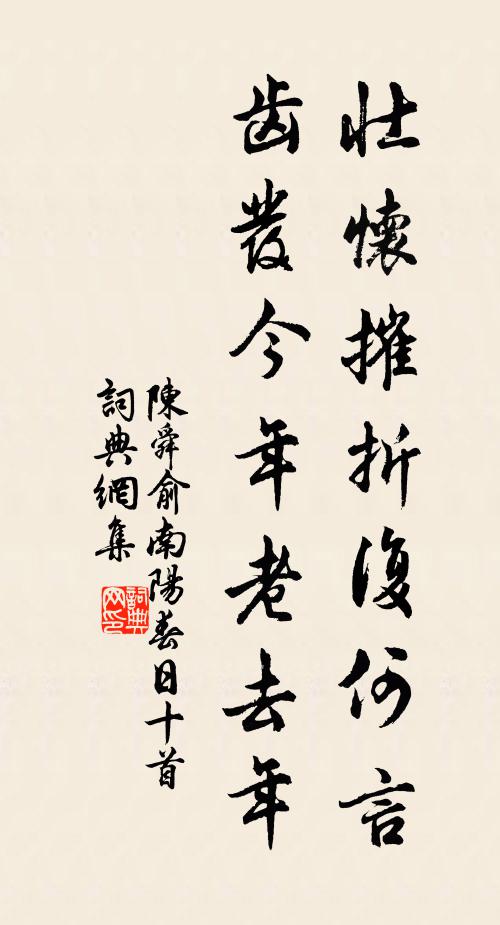 壯懷摧折復何言
齒發今年老去年
陳舜俞南陽春日十首
詞典網集
詞典网印